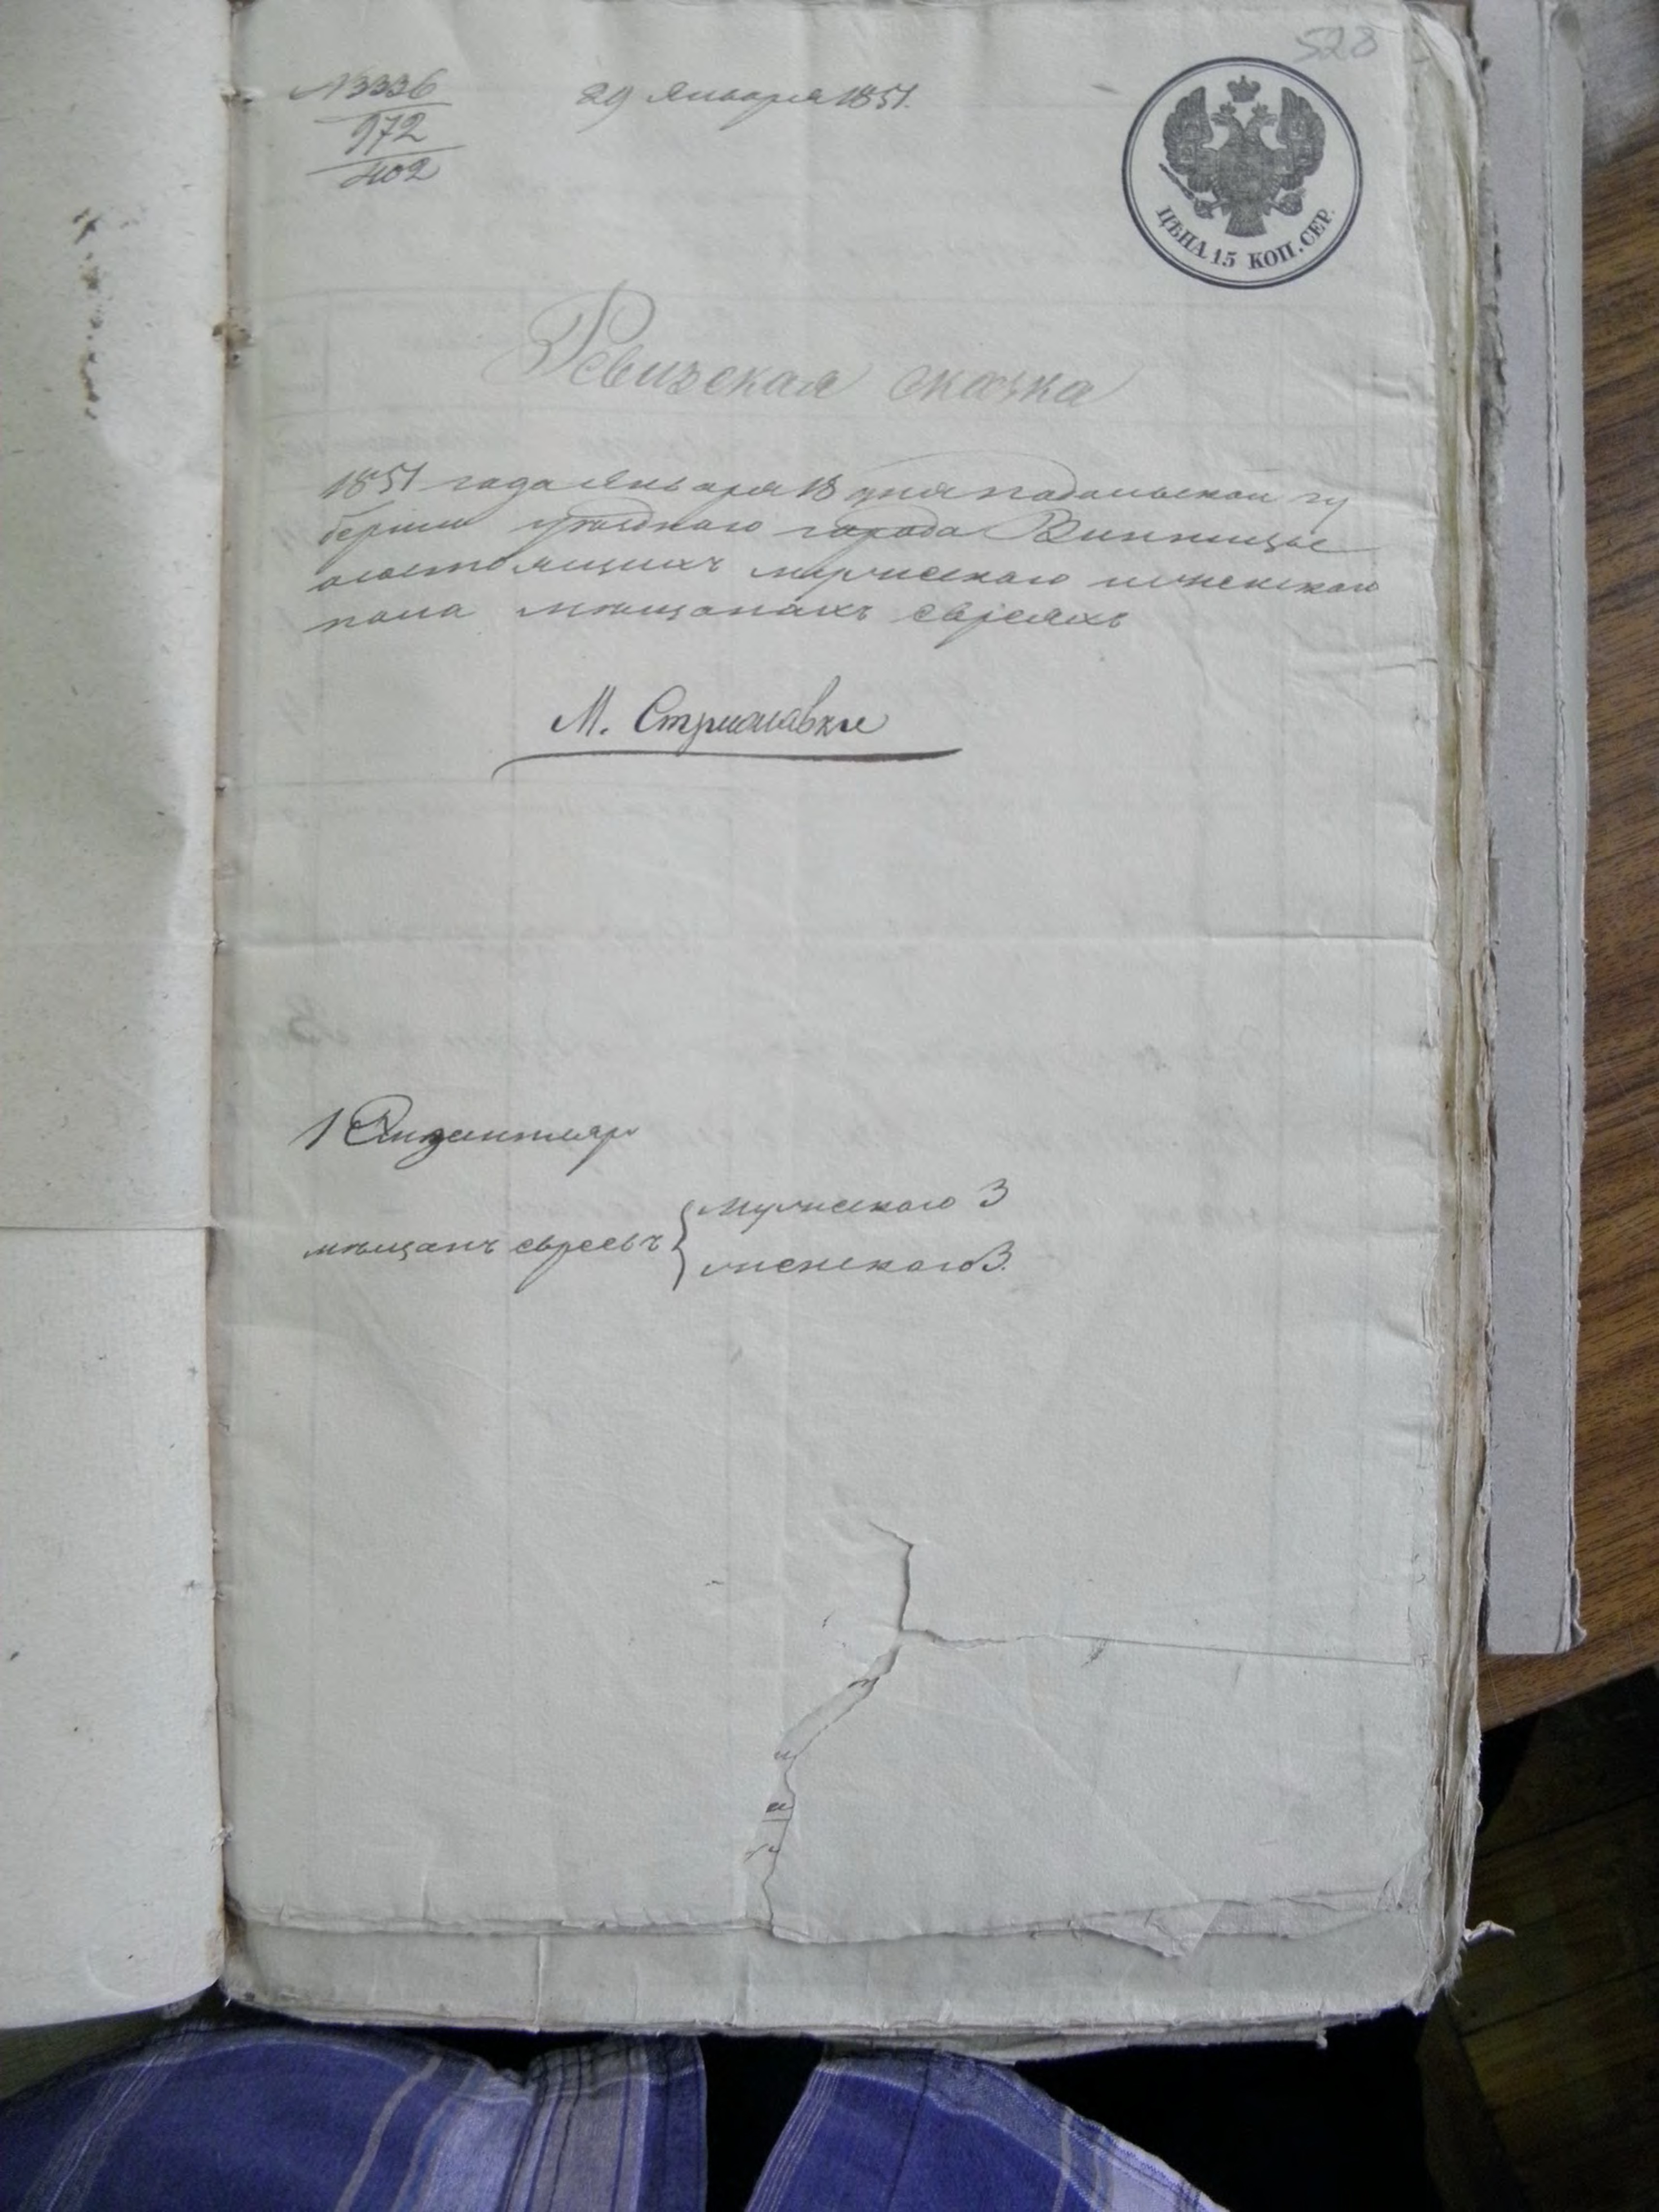 528
№ 336
972
402
29 Января 1851.
ЦѢНА 15 КОП. СЕР.
Ревизская сказка
1851 года Января 18 дня Подольской гу
бернии уѣзднаго города Винницы
состоящихъ мужескаго и женскаго
пола мѣщанахъ евреяхъ
М. Стрижавки
1 Экземпляр
мѣщанъ евреевъ { мужескаго 3
женскаго 3.